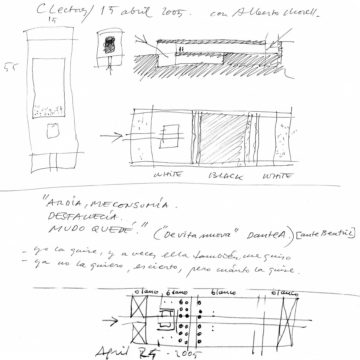 C Lectores/ 15 abril 2005. con Alberto Morell.
15
55
WHITE BLACK WHITE
"ARDÍA, ME CONSUMÍA.
DESFALLECÍA.
MUDO QUEDÉ." ("De vita nuova" Dante A) [ante Beatriz]
- yo la quise, y a veces ella también me quiso
- ya no la quiero, es cierto, pero cuánto la quise.
blanco blanco blanco blanco
April 2005